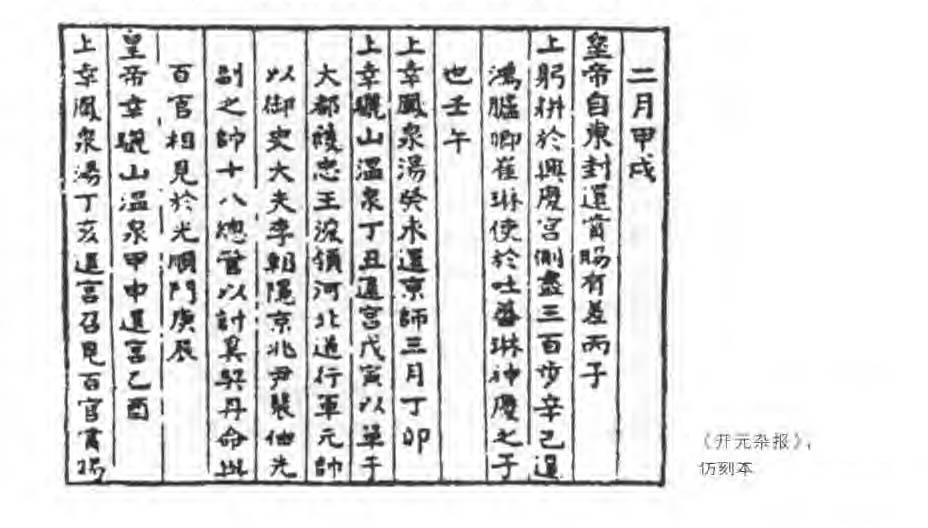 二月甲戌
皇帝自東封還賞賜有差丙子
上躬耕於興慶宮側盡三百步辛已遣
鴻臚卿崔琳使於吐蕃琳神慶之子
也壬午
上幸鳳泉湯癸未還京師三月丁卯
上幸驪山温泉丁丑還宮戊寅以單于
大都護忠王浚領河北道行軍元帥
以御史大夫李朝隱京兆尹裴伷先
副之帥十八總管以討奚契丹命與
百官相見於光順門庚辰
皇帝幸驪山温泉甲申還宮乙酉
上幸鳳泉湯丁亥還宮召見百官賞賜
《开元杂报》,
仿刻本